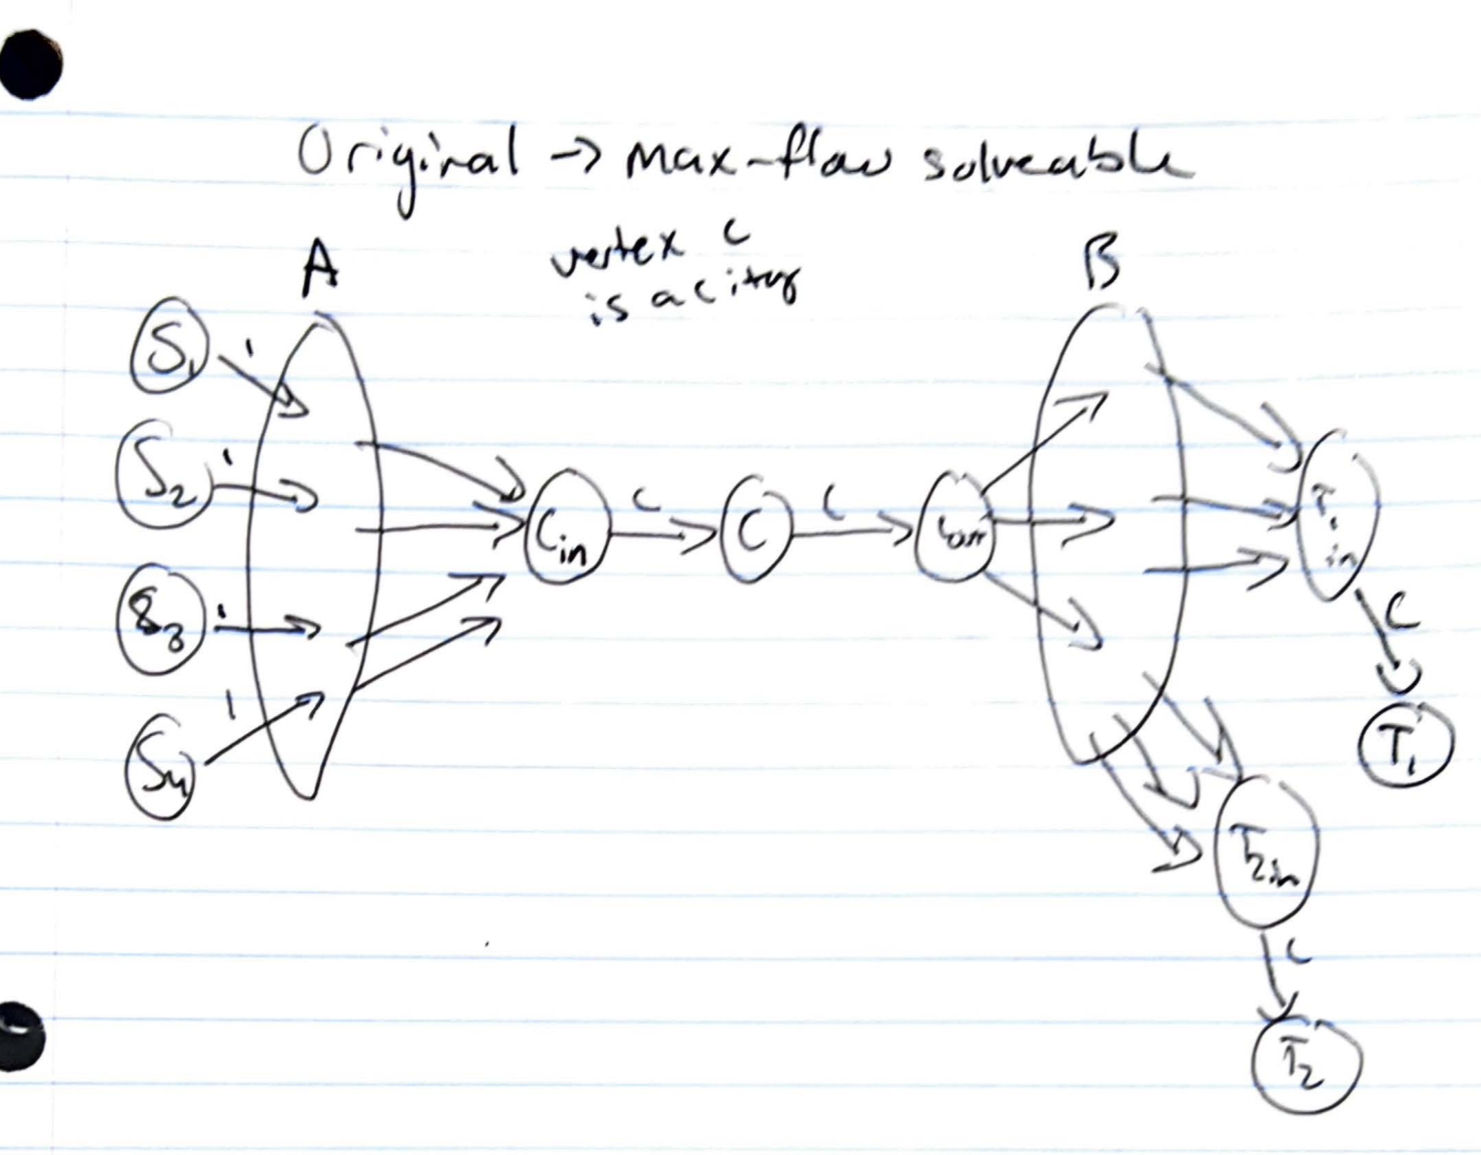 Original → max-flow solveable
vertex c
is a city
A
B
S1
1
S2
1
S3
1
S4
1
Cin
c
C
c
Cout
T1 in
c
T1
T2in
c
T2